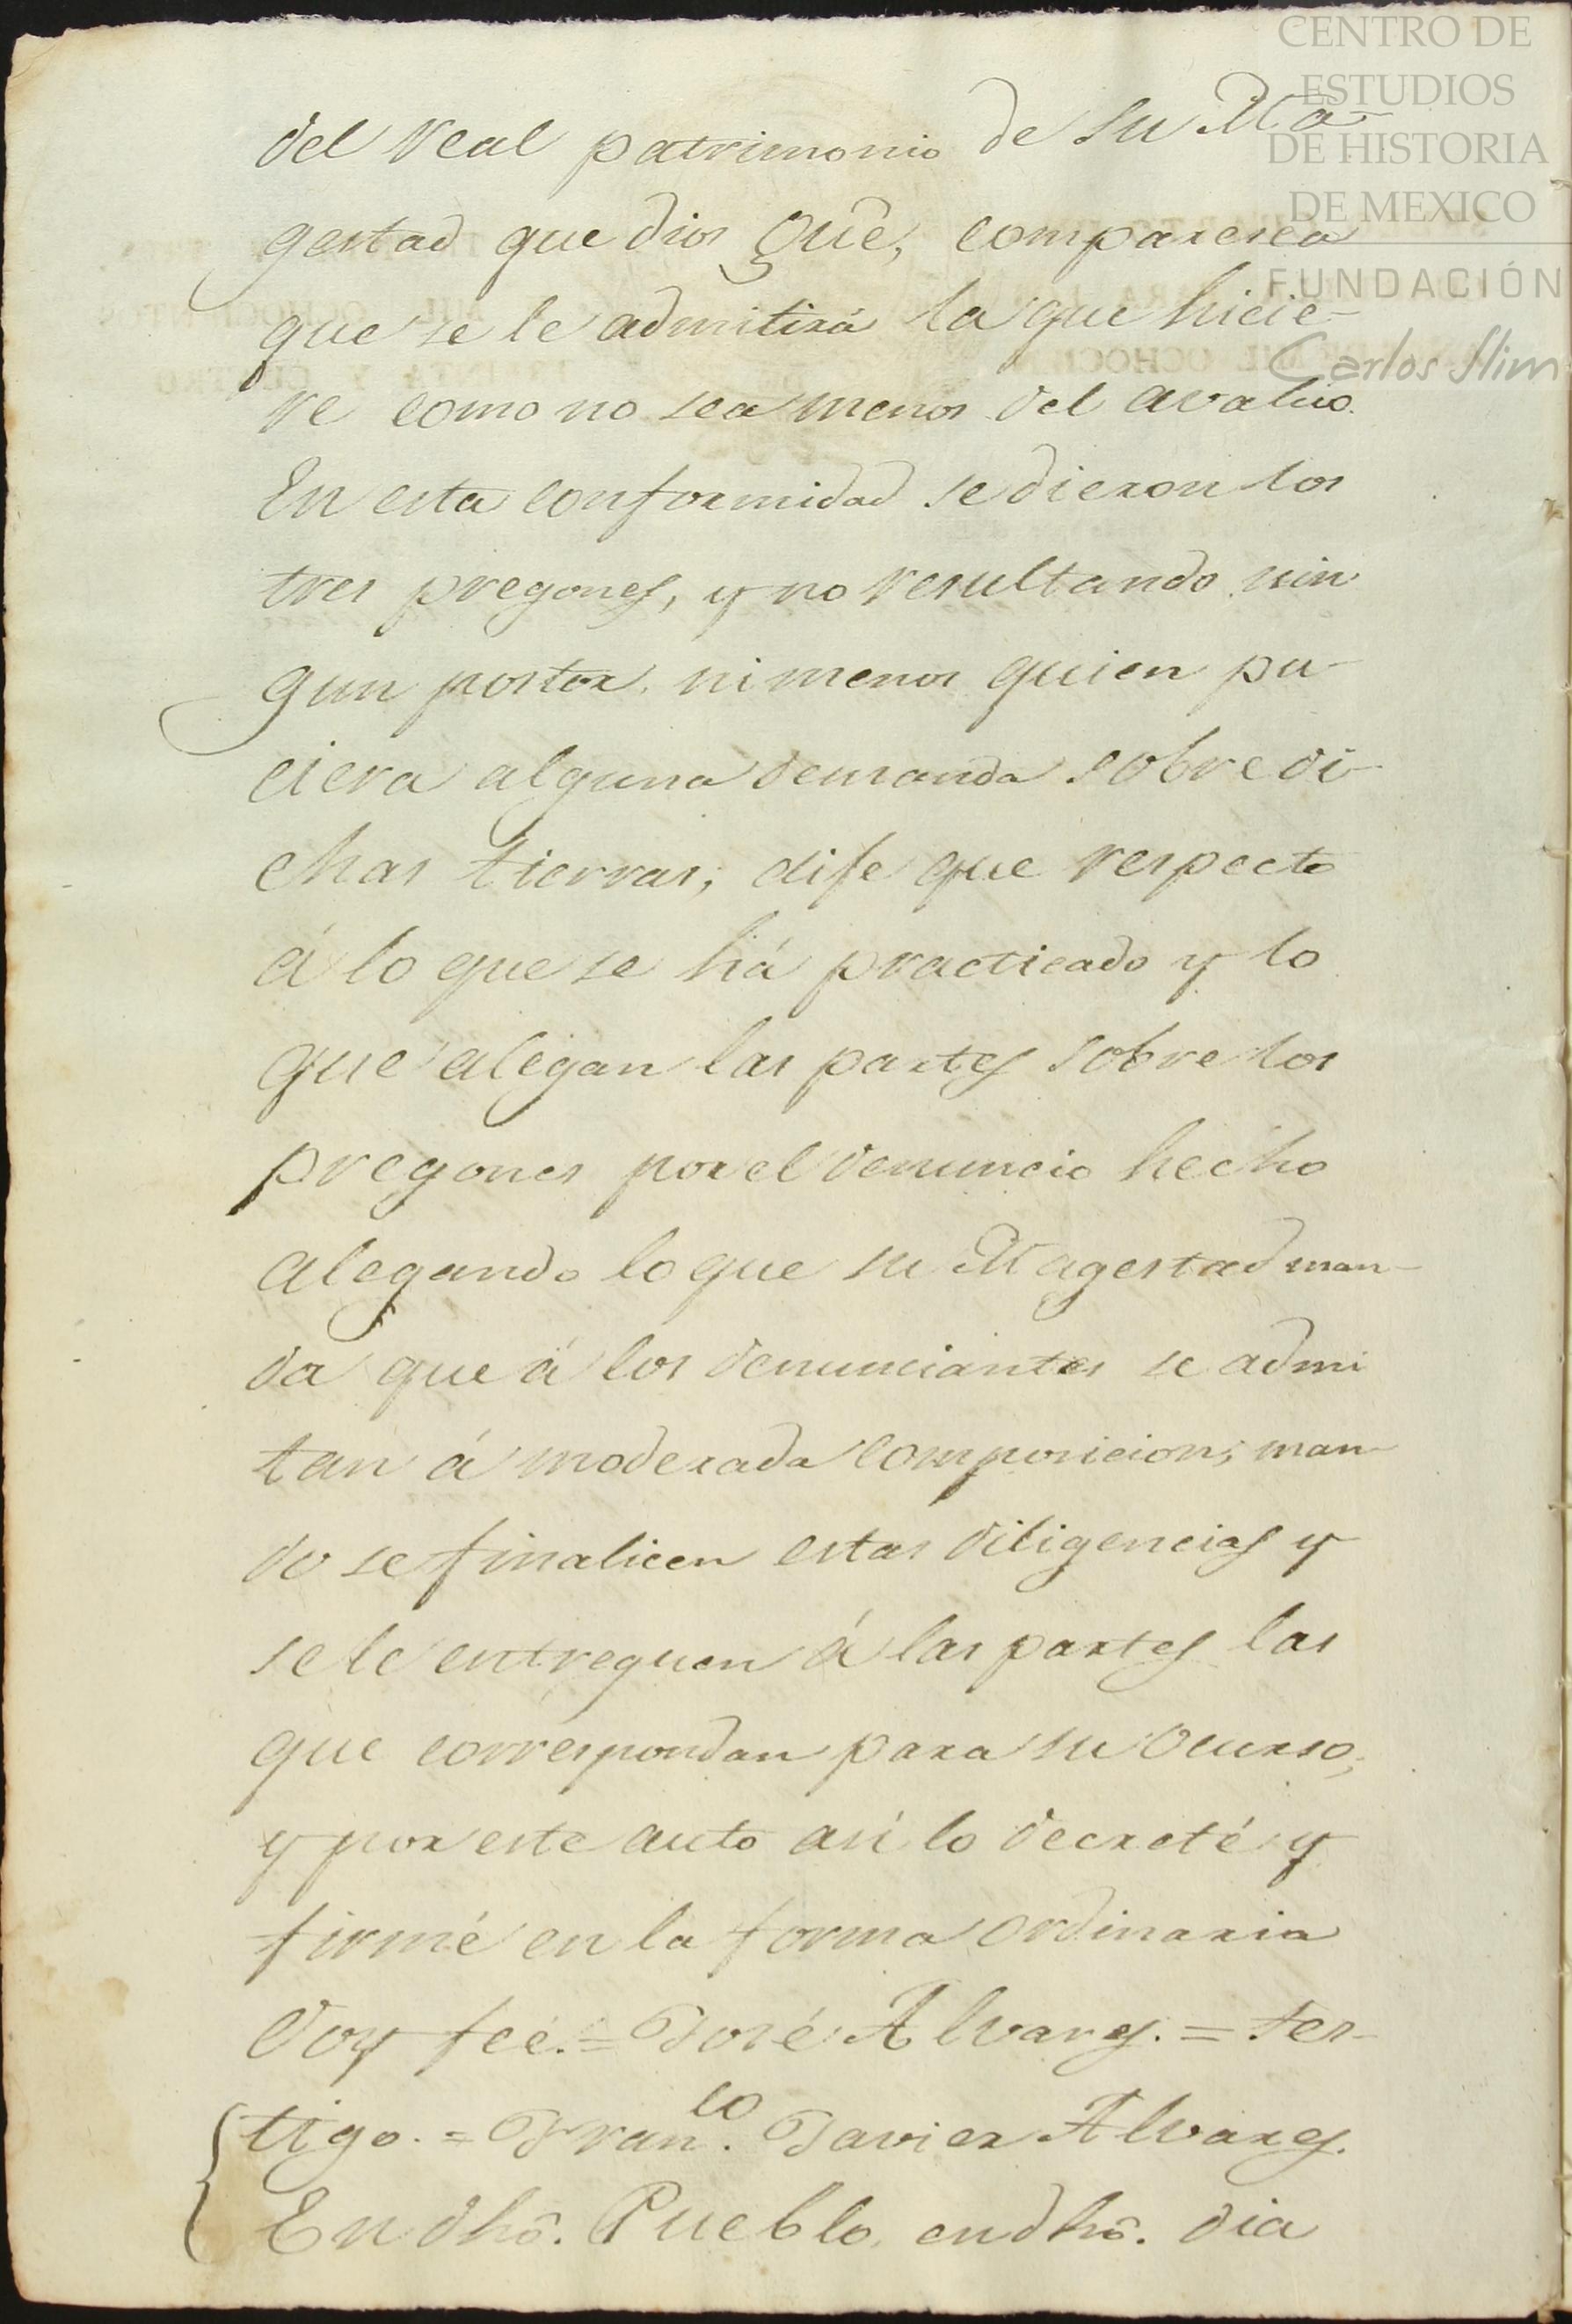 CENTRO DE
ESTUDIOS
DE HISTORIA
DE MEXICO
FUNDACIÓN
Carlos Slim
del real patrimonio de su Ma-
gestad que dios gue, comparesca
que se le admitirá la que hicie-
re como no sea menos del avaluo.
En esta conformidad se dieron los
tres pregones, y no resultando nin
gun postor, ni menos quien pu-
ciera alguna demanda sobre di-
chas tierras, dife que respecto
á lo que se há practicado y lo
que alegan las partes sobre los
pregones por el denuncio hecho
alegando lo que su Magestad man-
da que á los denunciantes se admi
tan á moderada composicion; man-
do se finalicen estas diligencias y
se le entreguen á las partes las
que correspondan para su ocurso,
y por este auto asi lo decreté y
firmé en la forma ordinaria
Doy feé.= José Alvares. = tes-
tigo. = Fran.co Javier Alvares.
En dhô. Pueblo, en dhô. dia